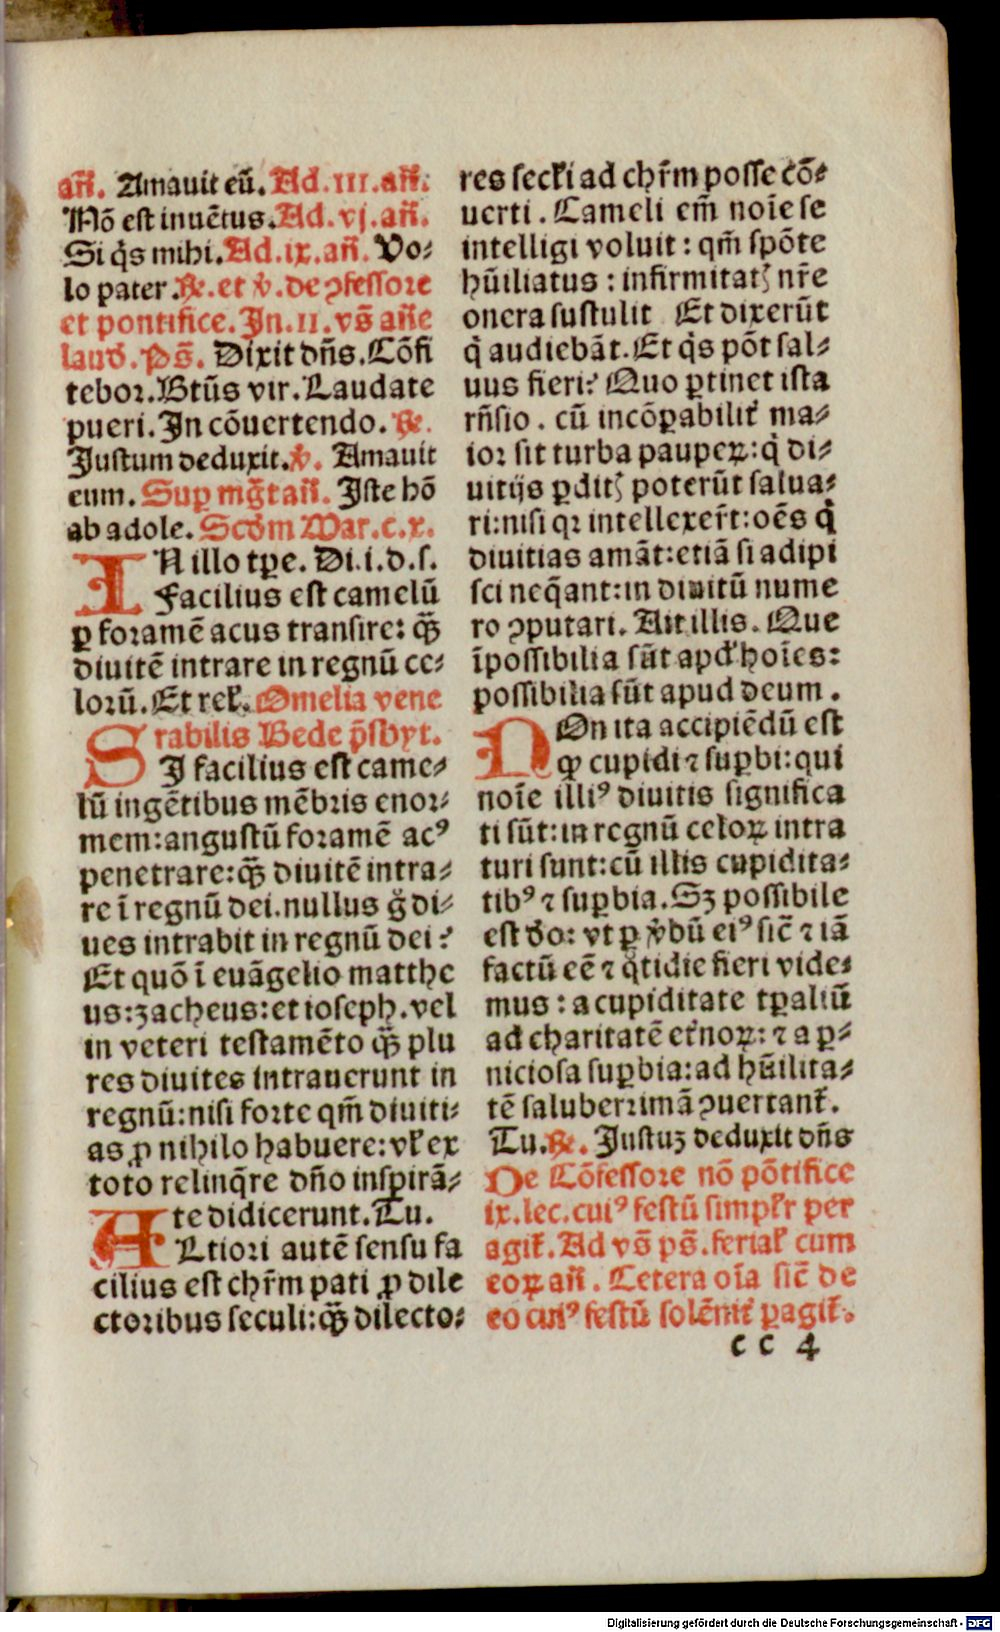 añ. Amauit eū. Ad. III. añ.
Nō est inuētus. Ad. vj. añ.
Si q̇s mihi. Ad. ix. añ. Vo⸗
lo pater. ꝶ. et ꝟ. de ꝯfessore
et pontifice. In. II. vs̄ añe
laud. Ps̄. Dixit dñs. Cōfi
tebor. Btūs vir. Laudate
pueri. In cōuertendo. ꝶ.
Justum deduxit. ꝟ. Amauit
eum. Suꝑ mg̃t añ. Iste hō
ab adole. Scd̓m Mar. c. x.
IN illo tꝑe. Di. i. d. s.
Facilius est camelū
ꝑ foramē acus transire: qȝ̄
diuitē intrare in regnū ce⸗
lorū. Et rel̓. Omelia vene
rabilis Bede p̄sbyt.
SI facilius est came⸗
lū ingētibus mēbris enor⸗
mem: angustū foramē acꝰ
penetrare: qȝ̄ diuitē intra⸗
re ī regnū dei. nullus g̊ di⸗
ues intrabit in regnū dei?
Et quō ī euāgelio matthe
us: zacheus: et ioseph. vel
in veteri testamēto qȝ̄ plu
res diuites intrauerunt in
regnū: nisi forte qm̄ diuiti⸗
as ꝓ nihilo habuere: vl̓ ex
toto relinq̄re dño inspirā⸗
te didicerunt. Tu.
ALtiori autē sensu fa
cilius est chr̄m pati ꝓ dile
ctoribus seculi: qȝ̄ dilecto⸗
res secl̓i ad chr̄m posse cō⸗
uerti. Cameli em̄ noīe se
intelligi voluit: qm̄ spōte
hūiliatus: infirmitatꝭ nr̄e
onera sustulit Et dixerūt
q̇ audiebāt. Et q̇s pōt sal⸗
uus fieri? Quo ꝑtinet ista
rñsio. cū incōꝑabilit̓ ma⸗
ior sit turba pauꝑeꝝ: q̇ di⸗
uitijs ꝑditꝭ poterūt salua⸗
ri: nisi qꝛ intellexer̄t: oēs q̇
diuitias amāt: etiā si adipi
sci neq̄ant: in diuitū nume
ro ꝯputari. Ait illis. Que
īpossibilia sūt apd̓ hoīes:
possibilia sūt apud deum.
NOn ita accipiēdū est
ꝙ cupidi ⁊ suꝑbi: qui
noīe illiꝰ diuitis significa
ti sūt: in regnū celoꝝ intra
turi sunt: cū illis cupidita⸗
tibꝰ ⁊ suꝑbia. Sȝ possibile
est d̓o: vt ꝑ ꝟbū eiꝰ sic̄ ⁊ iā
factū eē ⁊ q̊tidie fieri vide⸗
mus: a cupiditate tꝑaliū
ad charitatē et̓noꝝ: ⁊ a ꝑ⸗
niciosa suꝑbia: ad hūilita⸗
tē saluberrimā ꝯuertant̓.
Tu. ꝶ. Justuȝ deduxit dñs
De Cōfessore nō pōtifice
ix. lec. cuiꝰ festū simpl̓r per
agit̓. Ad vs̄ ps̄. ferial̓ cum
eoꝝ añ. Cetera oīa sic̄ de
eo cuiꝰ festū solēnit̓ ꝑagit̓.
c c 4
Digitalisierung gefördert durch die Deutsche Forschungsgemeinschaft - DFG